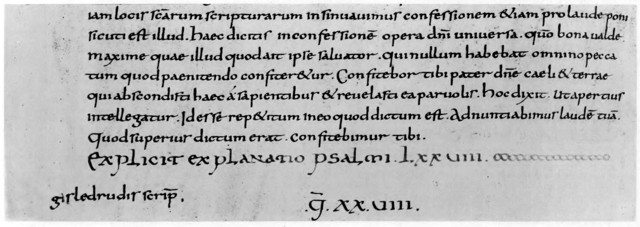 iam locis sc̄arum scripturarum insinuavimus confessionem &iam pro laude poni
sicuti est illud. haec dicitis in confessionē opera dn̄i universa. quō bona valde
maxime quae illud quod ait ipse salvator. qui nullum habebat omnino pecca
tum quod paenitendo confiter&ur. Confitebor tibi pater dn̄e caeli & terrae
qui abscondisti haec á sapientibus & revelasti ea parvolis. Hoc dixit. Ut apertius
intellegatur. Id esse rep&itum in eo quod dictum est. Adnuntiabimus laudē tuā.
Quod superius dictum erat. Confitebimur tibi.
Explicit explanatio psalmi. lxxviiii.
gisledrudis scrip̄.
.q̄. xx.viiii.